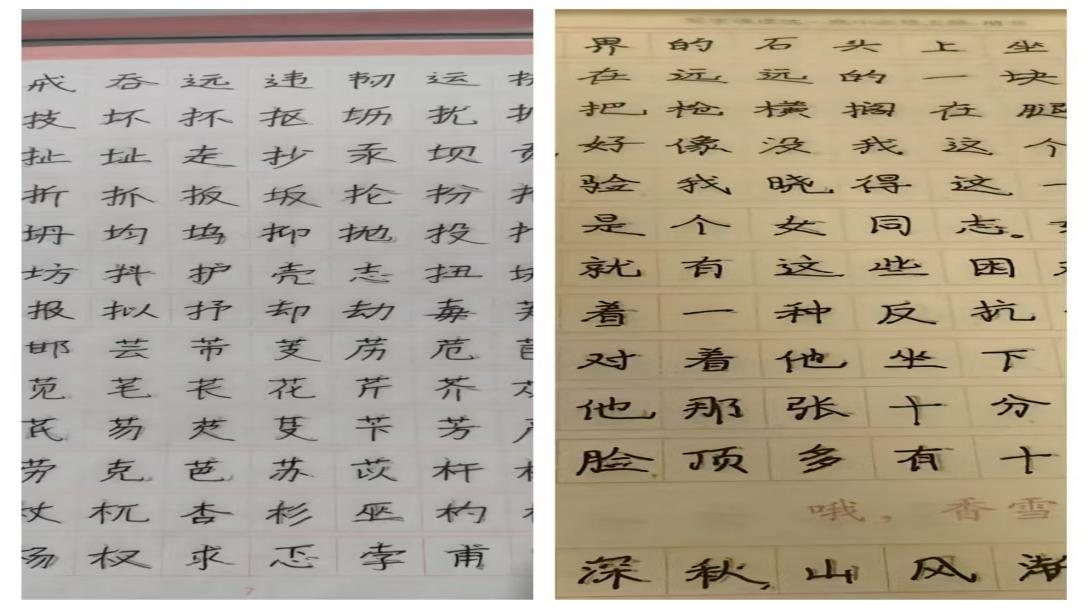 戒吞远违韧运
技坏抔抠坜扰
扯址走抄汞坝
折抓扳坂抡扮
坍均坞抑抛投
坊抖护壳志扭
报拟抒却劫毒
邯芸芾芰苈苊
苋芼苌花芹芥
芪芴芡芟苄芳
劳克芭苏苡杆
杖杌杏杉巫杓
杨权求忑孛甫
7
界的石头上坐
在远远的一块
把枪横搁在腿
好像没我这个
验我晓得这一
是个女同志。
就有这些困
着一种反抗
对着他坐下
他那张十分
脸顶多有十
哦，香雪
深秋,山风渐